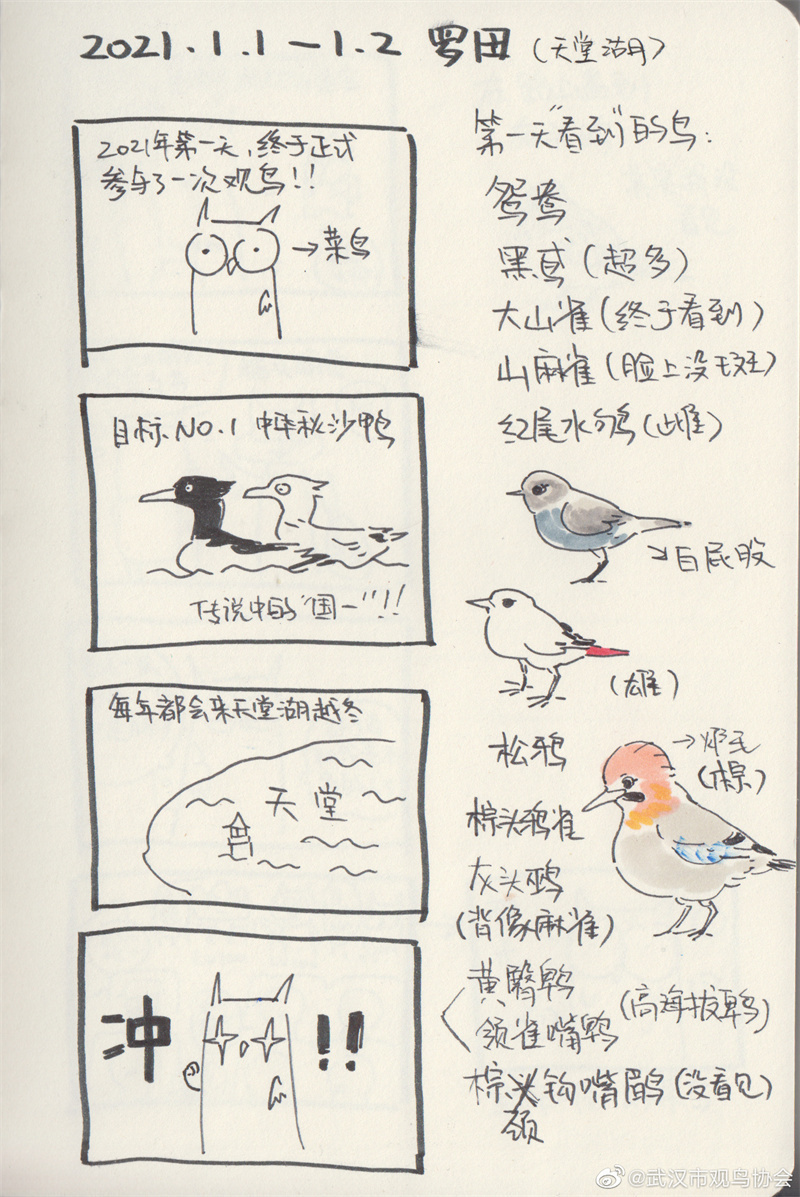 2021.1.1—1.2 罗田（天堂湖）
2021年第一天，终于正式
参与了一次观鸟！！
→菜鸟
目标NO.1 中华秋沙鸭
传说中的“国一”！！
每年都会来天堂湖越冬
天堂
冲！！
第一天“看到”的鸟：
鸳鸯
黑鸢（超多）
大山雀（终于看到）
山麻雀（脸上没斑）
红尾水鸲（雌）
白屁股
（雄）
松鸦
（棕）
棕头鸦雀
灰头鹀
（背像麻雀）
黄臀鹎
领雀嘴鹎
（高海拔鹎）
棕头钩嘴鹛（没看见）
颈
@武汉市观鸟协会